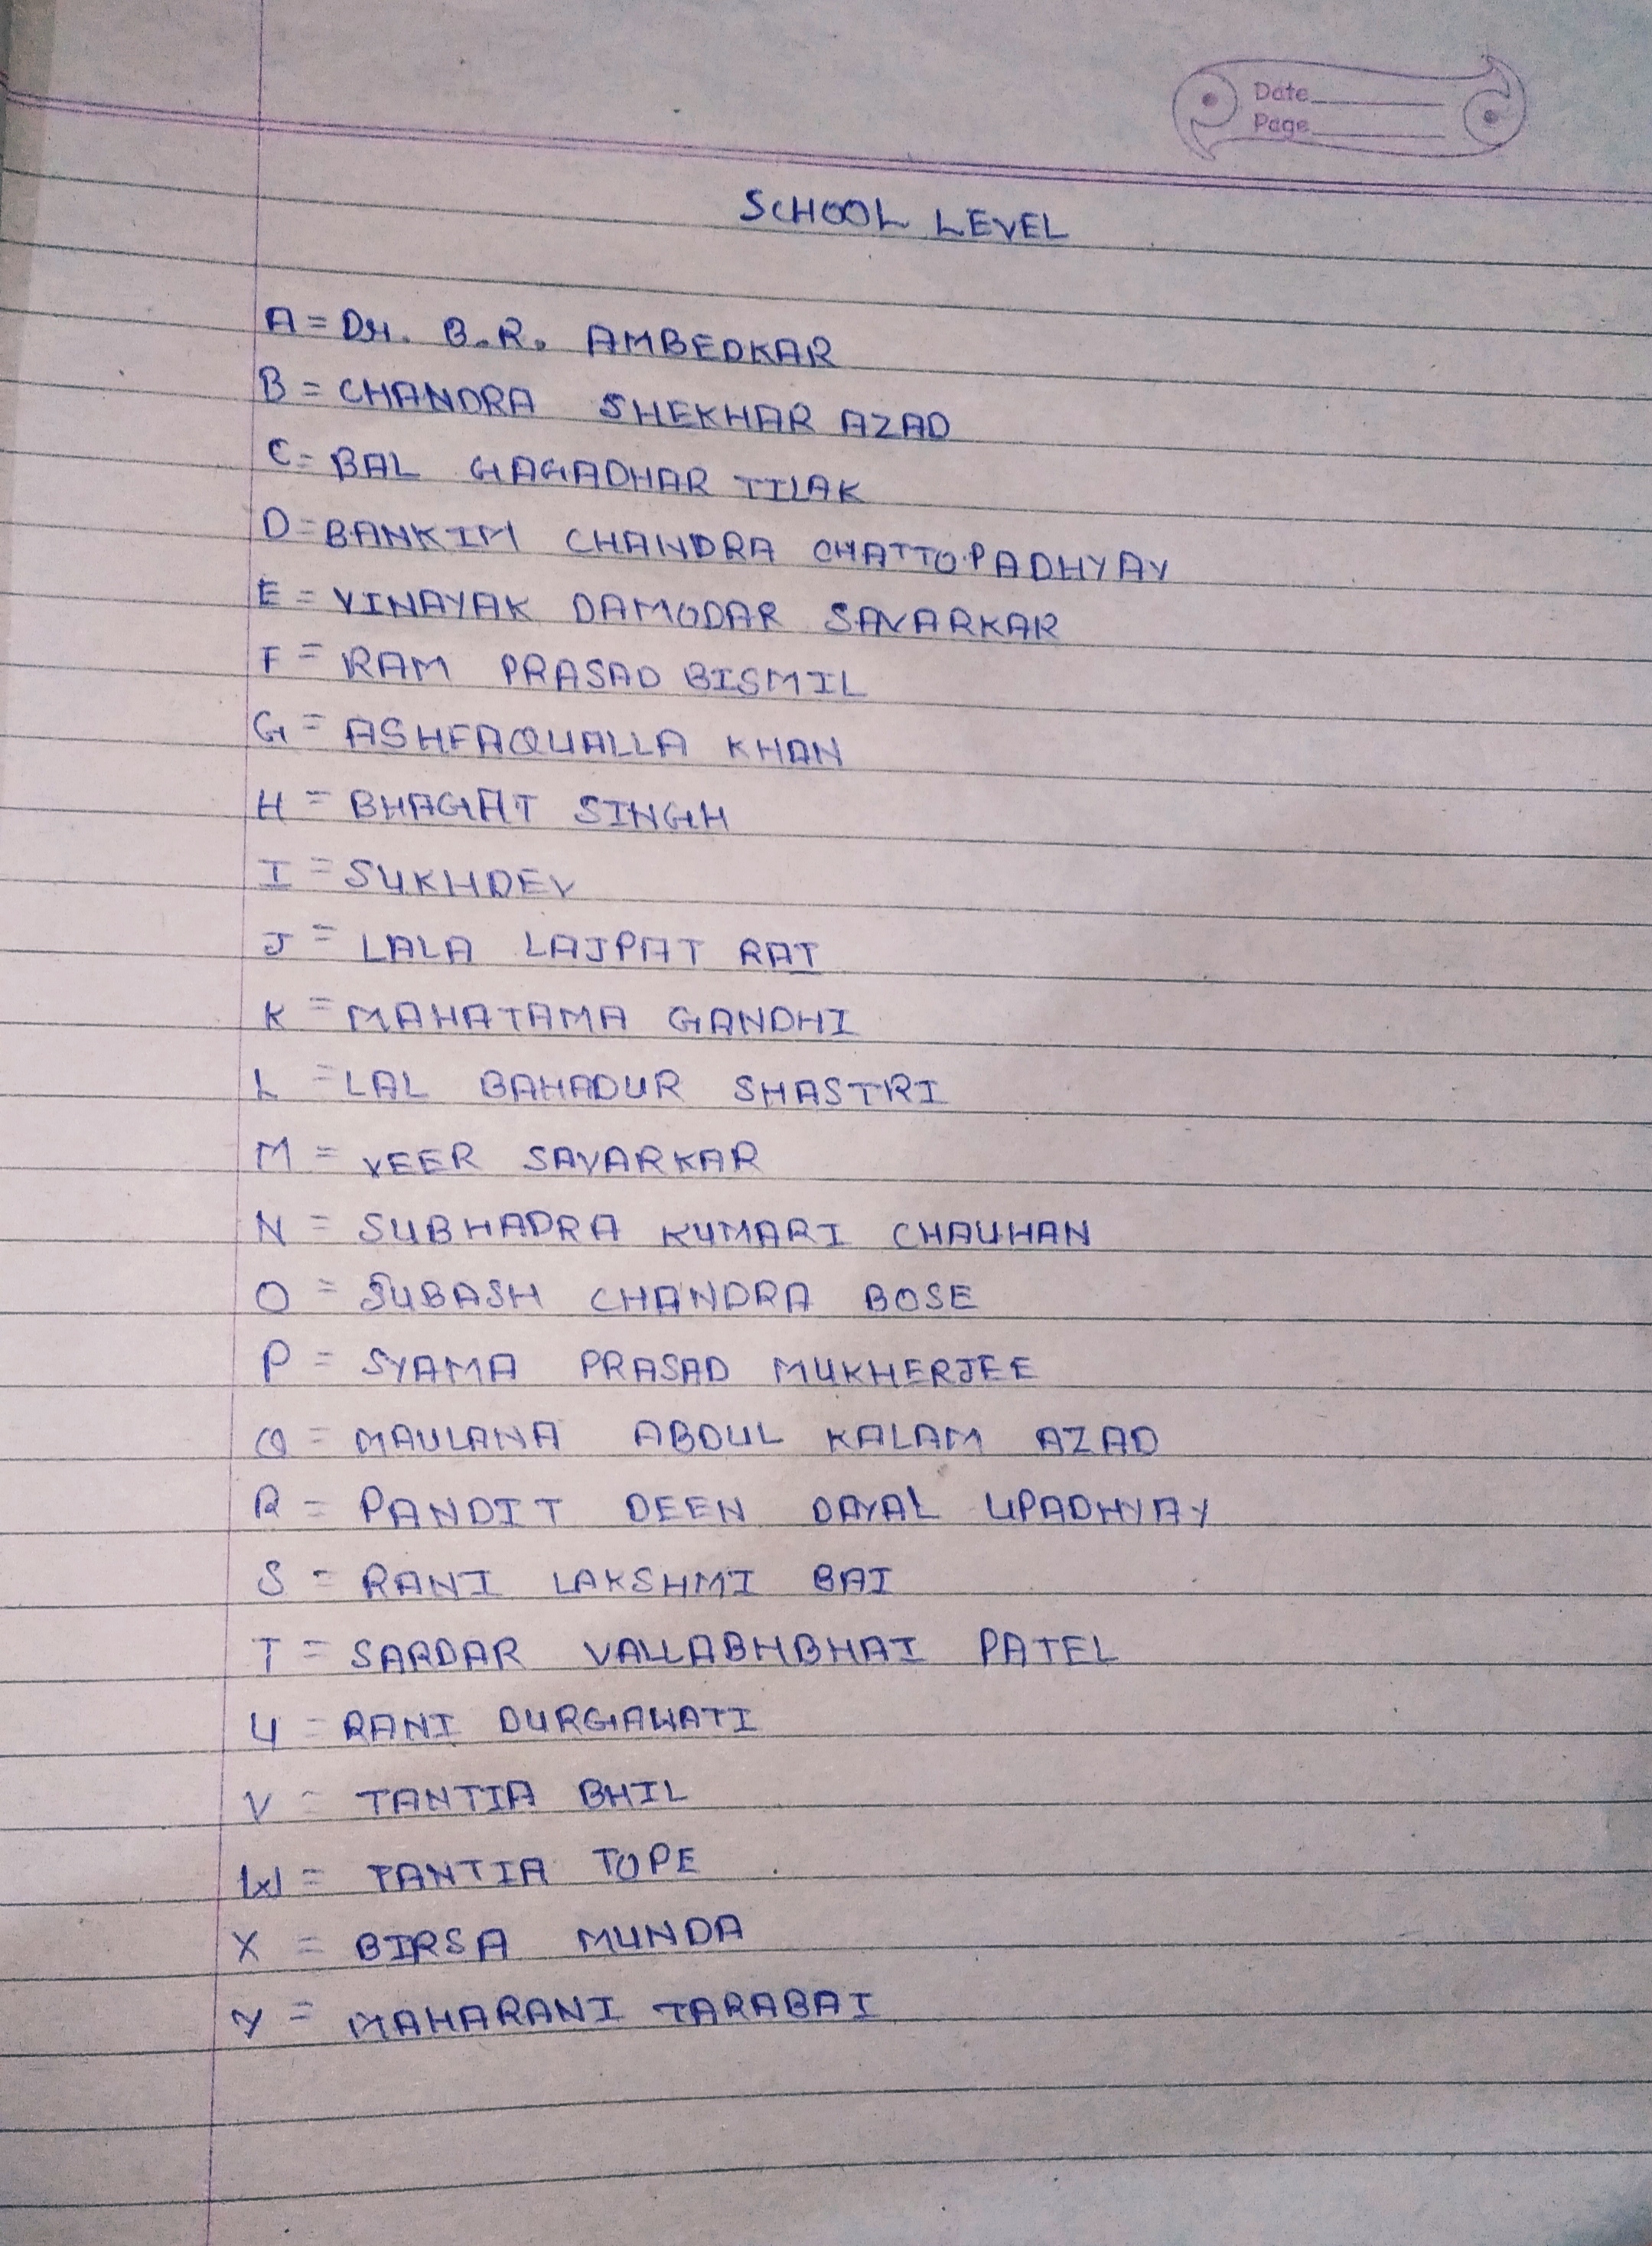 Date
Page
SCHOOL LEVEL
A = Dr. B.R. AMBEDKAR
B = CHANDRA SHEKHAR AZAD
C = BAL GAGADHAR TILAK
D = BANKIM CHANDRA CHATTOPADHYAY
E = VINAYAK DAMODAR SAVARKAR
F = RAM PRASAD BISMIL
G = ASHFAQUALLA KHAN
H = BHAGAT SINGH
I = SUKHDEV
J = LALA LAJPAT RAI
K = MAHATAMA GANDHI
L = LAL BAHADUR SHASTRI
M = VEER SAVARKAR
N = SUBHADRA KUMARI CHAUHAN
O = SUBASH CHANDRA BOSE
P = SYAMA PRASAD MUKHERJEE
Q = MAULANA ABDUL KALAM AZAD
R = PANDIT DEEN DAYAL UPADHYAY
S = RANI LAKSHMI BAI
T = SARDAR VALLABHBHAI PATEL
U = RANI DURGAWATI
V = TANTIA BHIL
W = TANTIA TOPE
X = BIRSA MUNDA
Y = MAHARANI TARABAI